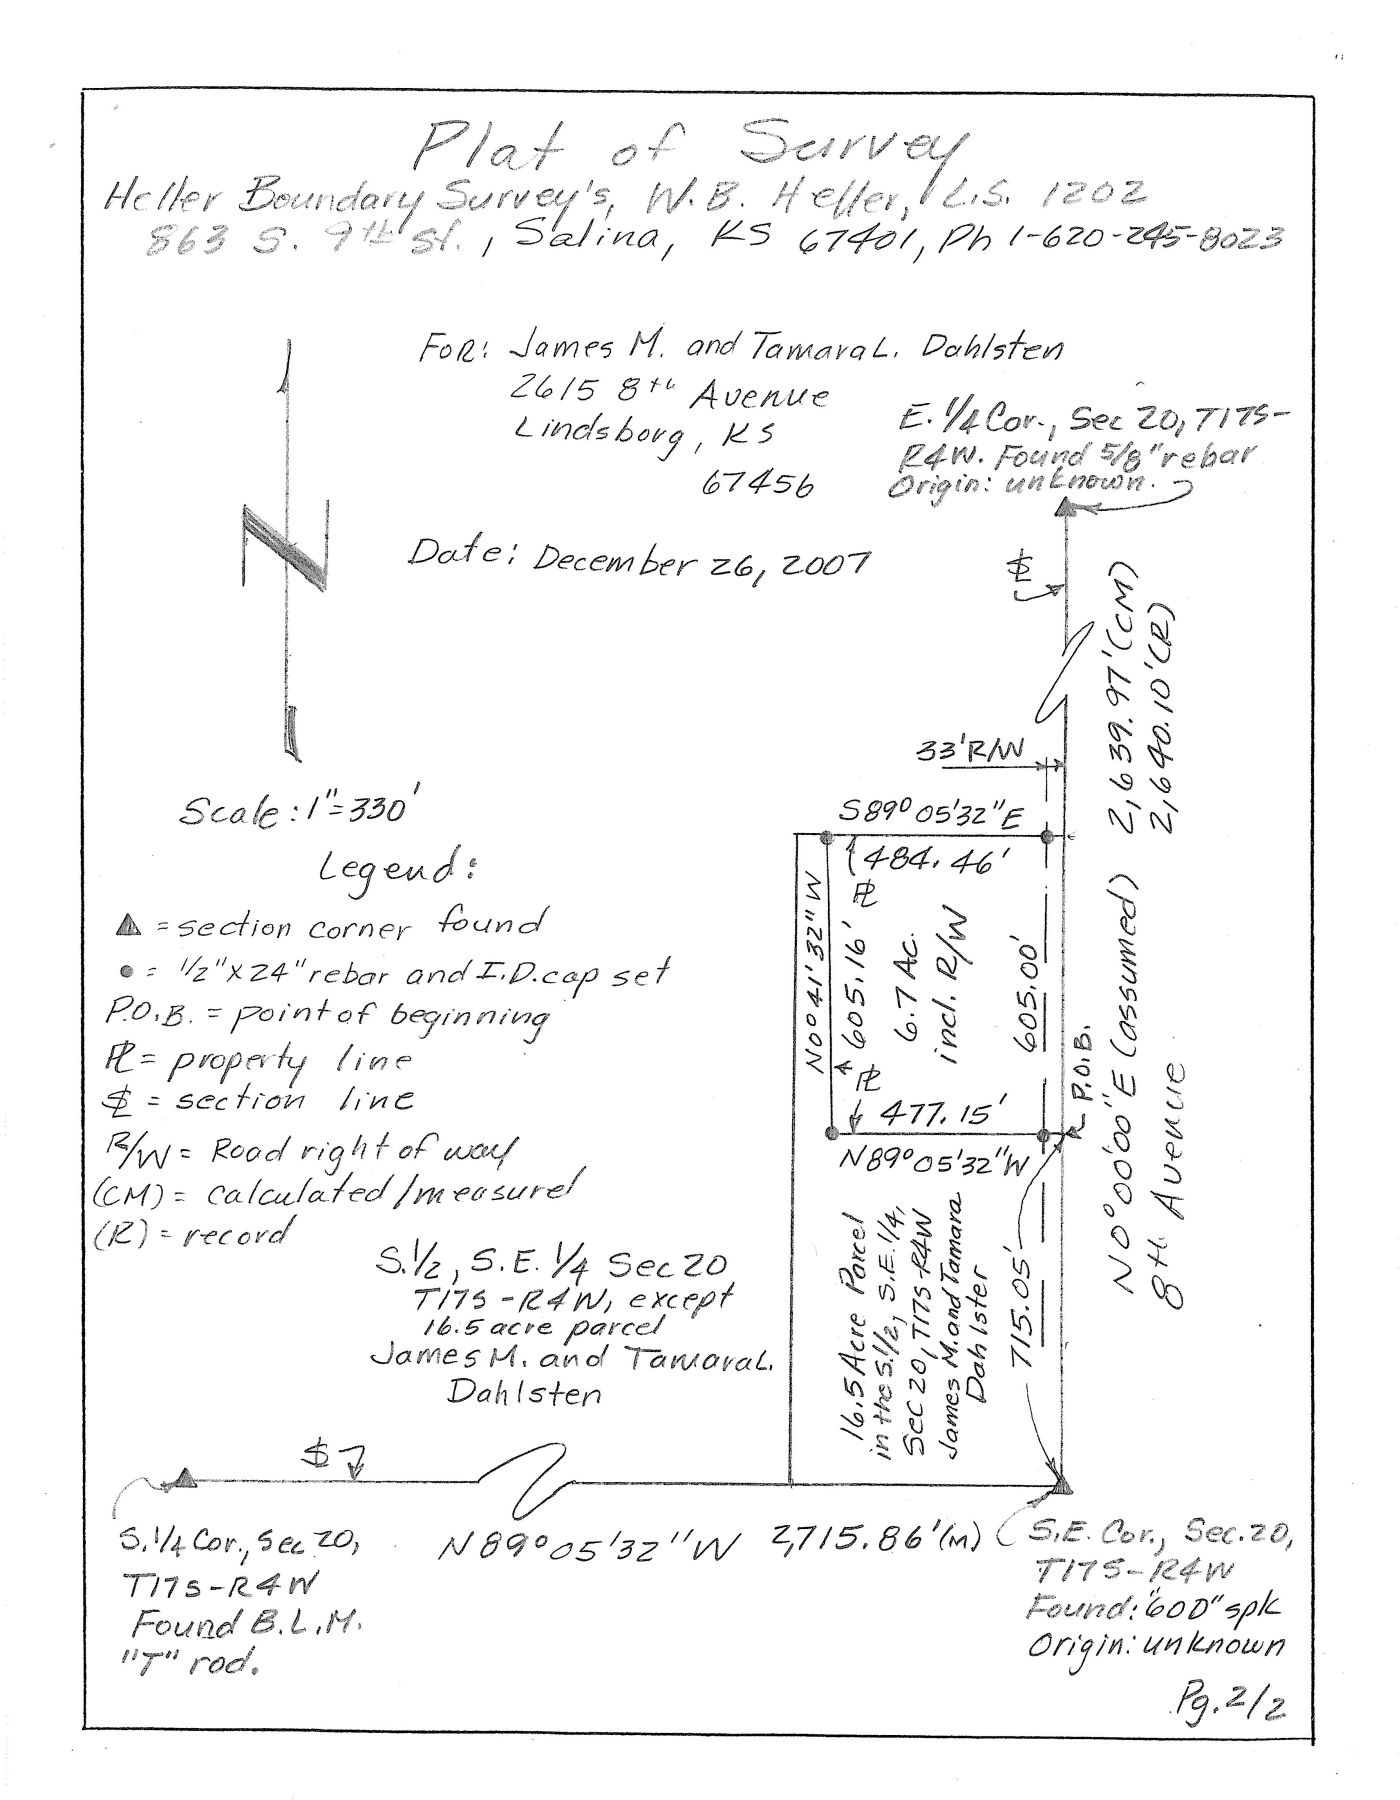 Plat of Survey
Heller Boundary Survey's, W.B. Heller, L.S. 1202
863 S. 9th St., Salina, KS 67401, Ph 1-620-245-8023
FOR: James M. and Tamara L. Dahlsten
2615 8th Avenue
Lindsborg, KS
67456
E. 1/4 Cor., Sec 20, T17S-
R4W. Found 5/8" rebar
Origin: unknown.
Date: December 26, 2007
2,639.97' (CM)
2,640.10' (R)
33' R/W
Scale: 1"=330'
S89° 05'32" E
484.46'
N0° 41' 32" W
605.16'
6.7 Ac.
incl. R/W
605.00'
P.O.B.
477.15'
N89° 05'32" W
N0° 00'00" E (assumed)
8th. Avenue
Legend:
▲ = section corner found
● = 1/2" X 24" rebar and I.D. cap set
P.O.B. = point of beginning
PL = property line
SL = section line
R/W = Road right of way
(CM) = calculated/measured
(R) = record
S.1/2, S.E. 1/4 Sec 20
T17S-R4W, except
16.5 acre parcel
James M. and Tamara L.
Dahlsten
16.5 Acre Parcel
in the S.1/2, S.E.1/4,
Sec 20, T17S-R4W
James M. and Tamara
Dahlster
715.05'
SL
PL
PL
SL
S. 1/4 Cor., Sec 20,
T17S-R4W
Found B.L.M.
"T" rod.
N89° 05'32" W 2,715.86' (M)
S.E. Cor., Sec. 20,
T17S-R4W
Found: "60D" spk
Origin: unknown
Pg. 2/2